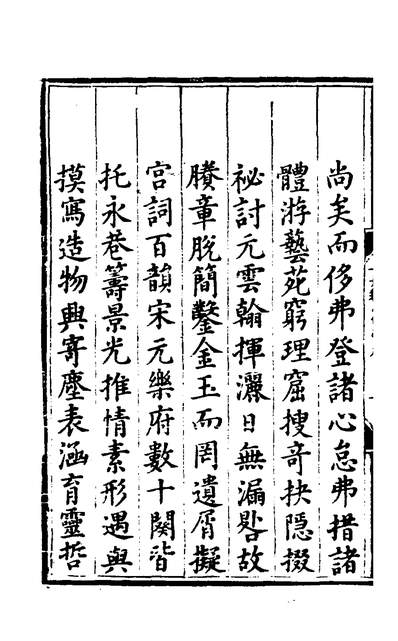 尚矣而侈弗登諸心怠弗措諸
體游藝苑窮理窟搜奇抉隱掇
祕討元雲翰揮灑日無漏晷故
賸章脫簡鏧金玉而罔遺屑擬
宫詞百韻宋元樂府數十闋皆
托永巷籌景光推情素形遇與
摸寫造物興寄塵表涵育靈哲